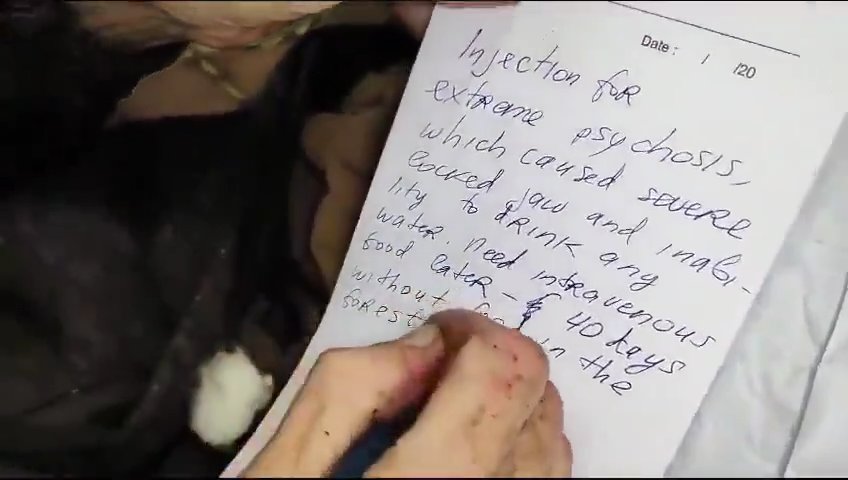 Date: / /20
Injection for
extreme psychosis,
which caused severe
locked jaw and inabi-
lity to drink any
water. need intravenous
food later – 40 days
without in the
forest